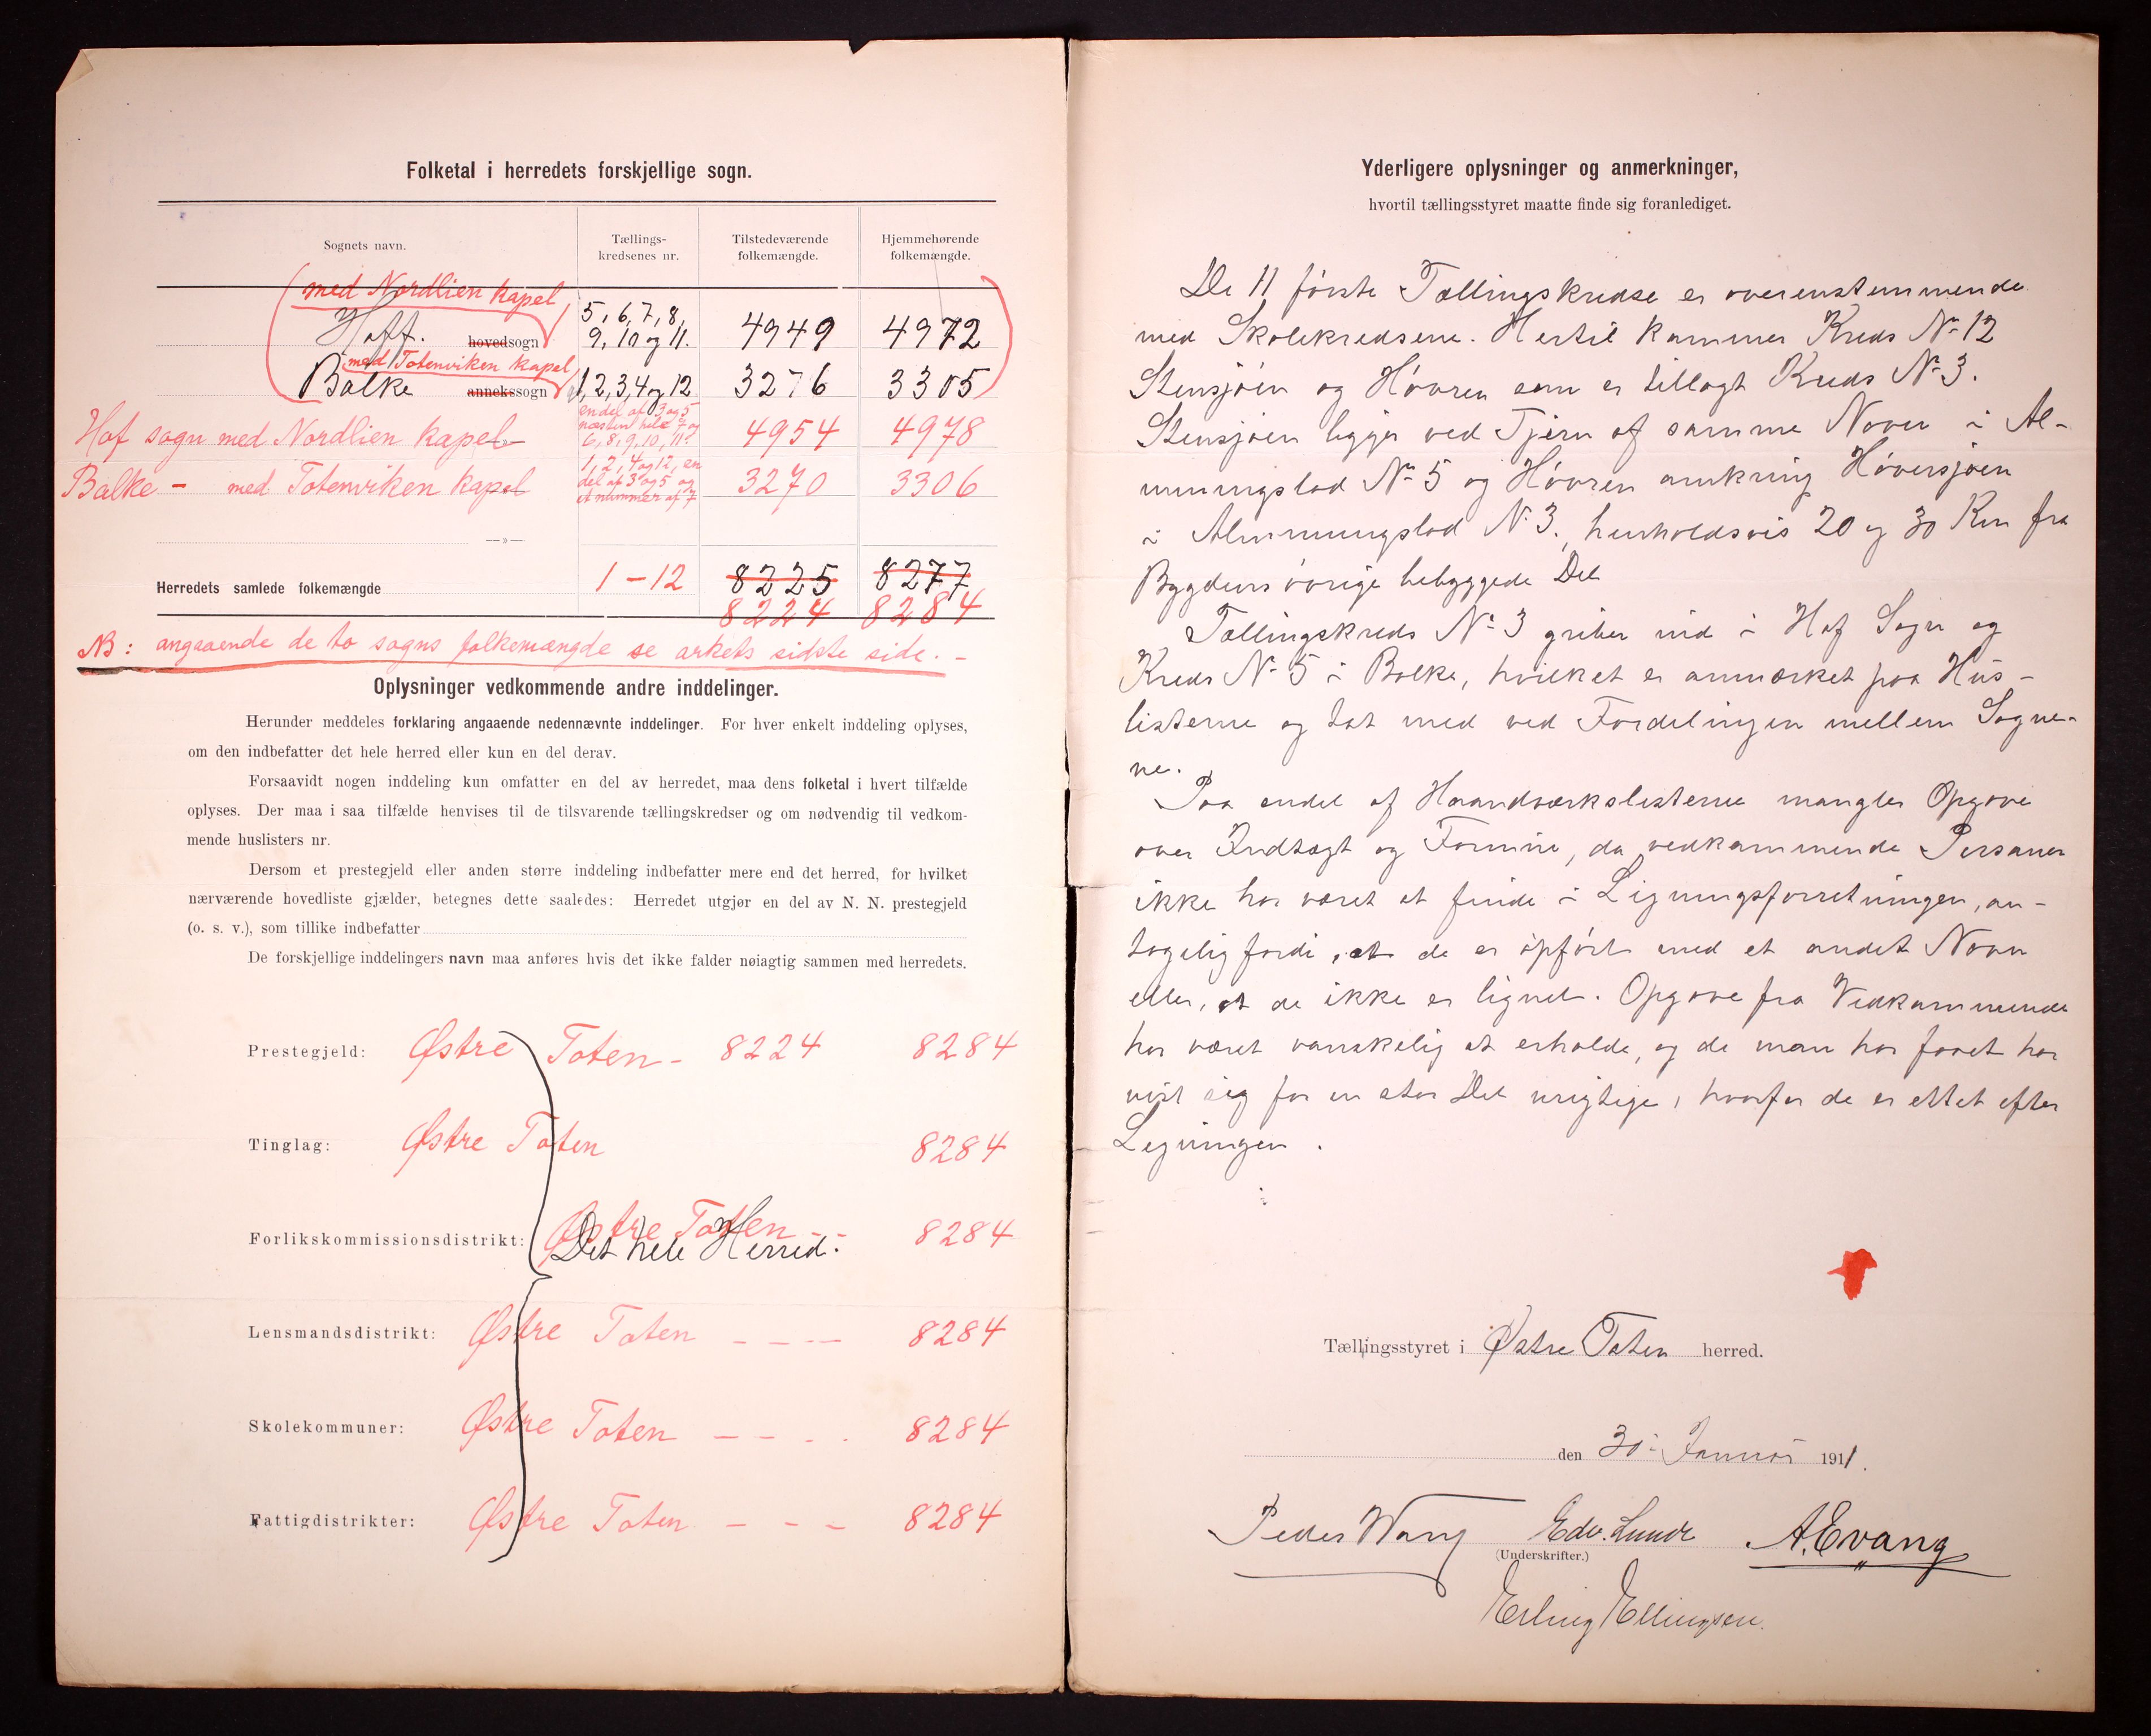 Folketal i herredets forskjellige sogn.
Sognets navn.
Tællings-
kredsenes nr.
Tilstedeværende
folkemængde.
Hjemmehørende
folkemængde.
med Nordlien kapel
Hoff. hovedsogn 5, 6, 7, 8, 9, 10 og 11. 4949 4972
med Totenviken kapel
Balke annekssogn 1, 2, 3, 4 og 12 3276 3305
Hof sogn med Nordlien kapel en del af 3 og 5 næsten hele 7 og 6, 8, 9, 10, 11. 4954 4978
Balke - med Totenviken kapel 1, 2, 4 og 12, en del af 3 og 5 og et nummer af 7 3270 3306
—»—
Herredets samlede folkemængde 1-12 8225 8277
8224 8284
NB: angaaende de to sogns folkemængde se arkets sidste side. -
Oplysninger vedkommende andre inddelinger.
Herunder meddeles forklaring angaaende nedennævnte inddelinger. For hver enkelt inddeling oplyses,
om den indbefatter det hele herred eller kun en del derav.
Forsaavidt nogen inddeling kun omfatter en del av herredet, maa dens folketal i hvert tilfælde
oplyses. Der maa i saa tilfælde henvises til de tilsvarende tællingskredser og om nødvendig til vedkom-
mende huslisters nr.
Dersom et prestegjeld eller anden større inddeling indbefatter mere end det herred, for hvilket
nærværende hovedliste gjælder, betegnes dette saaledes: Herredet utgjør en del av N. N. prestegjeld
(o. s. v.), som tillike indbefatter
De forskjellige inddelingers navn maa anføres hvis det ikke falder nøiagtig sammen med herredets.
Prestegjeld: Østre Toten - 8224 8284
Tinglag: Østre Toten 8284
Forlikskommissionsdistrikt: Østre Toten - - 8284
Det hele Herred.
Lensmandsdistrikt: Østre Toten - - - - 8284
Skolekommuner: Østre Toten - - - - 8284
Fattigdistrikter: Østre Toten - - - 8284
Yderligere oplysninger og anmerkninger,
hvortil tællingsstyret maatte finde sig foranlediget.
De 11 første Tællingskredse er overenstemmende
med Skolekredsene. Hertil kommer Kreds No 12
Stensjøen og Høvren som er tillagt Kreds No 3.
Stensjøen ligger ved Tjern af samme Navn i Al-
munungslod No 5 og Høvren omkring Høversjøen
i Almunungslod No 3., henholdsvis 20 og 30 Km fra
Bygdens øvrige bebyggede Del
Tællingskreds No 3 griber ind i Hof Sogn og
Kreds No 5 i Balke, hvilket er anmærket paa Hus-
listerne og tat med ved Fordelingen mellem Sogne-
ne.
Paa endel af Haandværkslisterne mangler Opgave
over Indtægt og Formue, da vedkommende Personer
ikke har været at finde i Ligningsforretningen, an-
tagelig fordi, at de er opført med et andet Navn
eller, at de ikke er lignet. Opgave fra Vedkommende
har været vanskelig at erholde, og de man har faaet har
vist sig for en stor Del urigtige, hvorfor de er ettet efter
Ligningen.
Tællingsstyret i Østre Toten herred.
den 30. Januar 1911.
Peder Wang Edv. Lunde A. Evang
(Underskrifter.)
Erling Ellingsen.